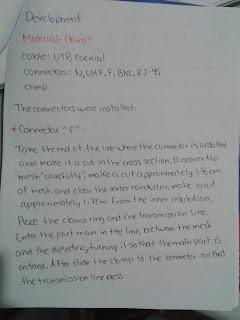 Development
Material-items:
cable: UTP, coaxial
connectors: N, UHF, F, BNC, RJ-45
clamp.
The connectors were installed:
* Connector "F":
Take the end of the line where the connector is installed
and make it a cut in the cross section, Discover the
mesh "carefully", make a cut approximately 1.8cm
of mesh and clear the enter conductor, make a cut
approximately 1.7cm from the inner insulation.
Place the clamp ring and the transmission line.
Enter the part main in the line, between the mesh
and the dielectric, turning it so that the main part is
entered. After slide the clamp to the connetor so that
the transmission line press